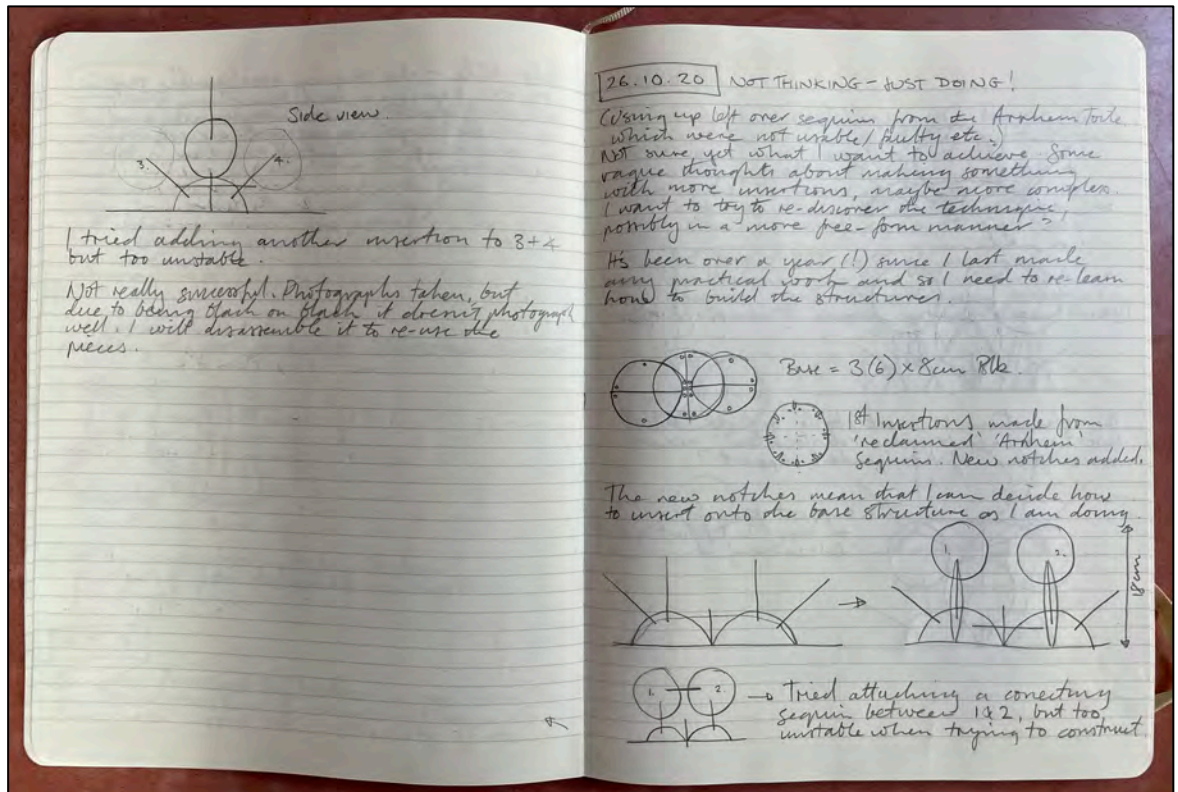 Side view.
3. 4.
I tried adding another insertion to 3+4
but too unstable.
Not really successful. Photographs taken, but
due to being black on black it doesn't photograph
well. I will disassemble it to re-use the
pieces.
26.10.20 NOT THINKING - JUST DOING!
(Using up left over sequins from the Arnhem toile
which were not usable/faulty etc.)
Not sure yet what I want to achieve. Some
vague thoughts about making something
with more insertions, maybe more complex.
I want to try to re-discover the technique,
possibly in a more free-form manner?
It's been over a year (!) since I last made
any practical work and so I need to re-learn
how to build the structures.
Base = 3(6) x 8cm Blk.
1st Insertions made from
'reclaimed' 'Arnhem'
sequins. New notches added.
The new notches mean that I can decide how
to insert onto the base structure as I am doing
1. 2.
18cm
1. 2. → Tried attaching a conecting
sequin between 1&2, but too
unstable when trying to construct.